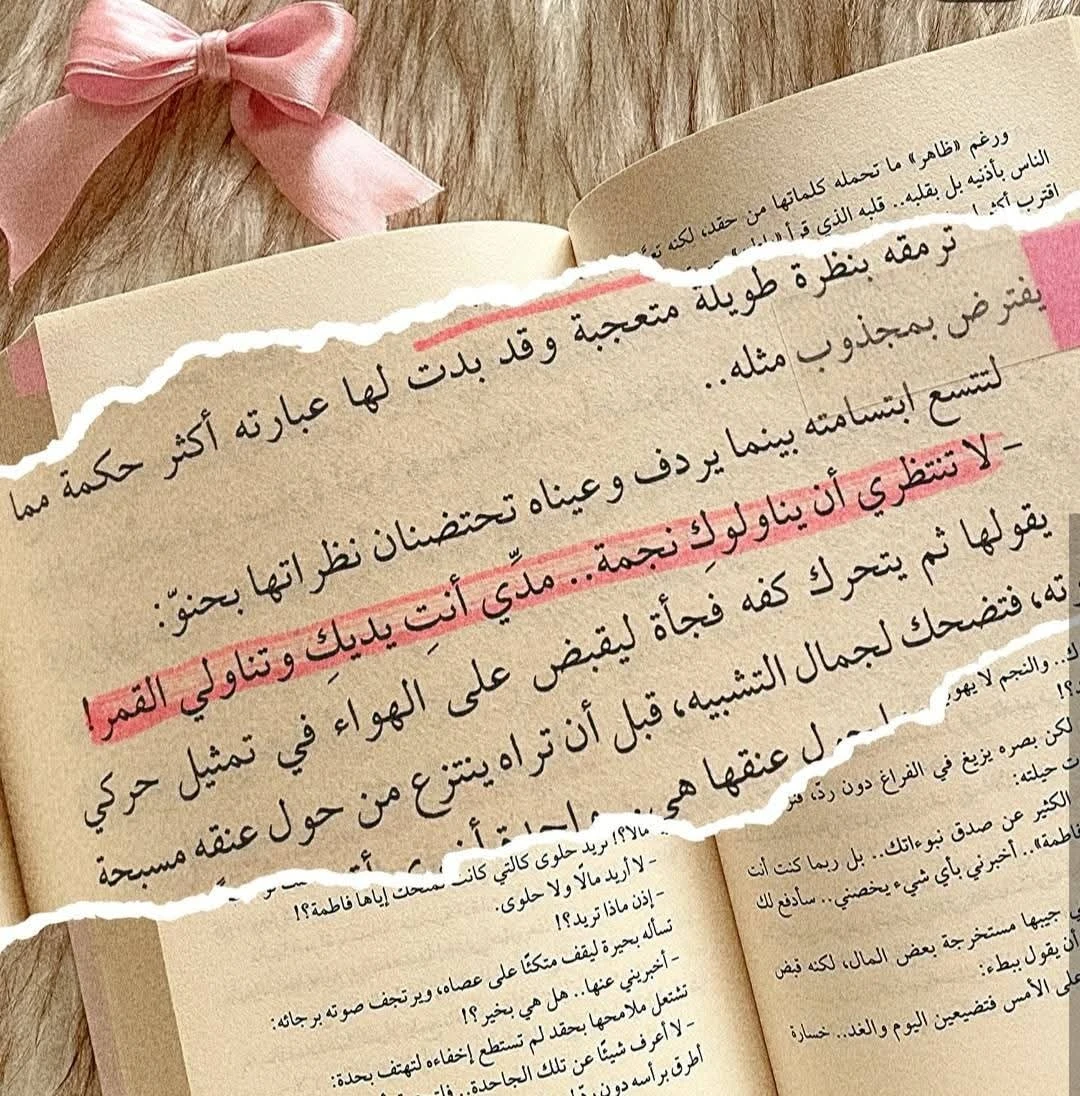 ورغم «ظاهر» ما تحمله كلماتها من حقد، لكنه
الناس بأذنيه بل بقلبه.. قلبه الذي قرأ
اقترب أكثر
ترمقه بنظرة طويلة متعجبة وقد بدت لها عبارته أكثر حكمة مما
يفترض بمجذوب مثله..
لتتسع ابتسامته بينما يردف وعيناه تحتضنان نظراتها بحنوّ:
– لا تنتظري أن يناولوكِ نجمة.. مدِّي أنتِ يديكِ وتناولي القمر!
يقولها ثم يتحرك كفه فجأة ليقبض على الهواء في تمثيل حركي
فتضحك لجمال التشبيه، قبل أن تراه ينتزع من حول عنقه مسبحة
حول عنقها هي
مالًا؟! تريد حلوى كالتي كانت تمنحك إياها فاطمة؟!
– لا أريد مالًا ولا حلوى.
– إذن ماذا تريد؟!
تسأله بحيرة ليقف متكئًا على عصاه، ويرتجف صوته برجائه:
– أخبريني عنها.. هل هي بخير؟!
تشتعل ملامحها بحقد لم تستطع إخفاءه لتهتف بحدة:
– لا أعرف شيئًا عن تلك الجاحدة..
أطرق برأسه دون
والنجم لا
لكن بصره يزيغ في الفراغ دون ردّ،
حيلته:
الكثير عن صدق نبوءاتك.. بل ربما كنت أنت
فاطمة».. أخبرني بأي شيء يخصني.. سأدفع لك
جيبها مستخرجة بعض المال، لكنه قبض
أن يقول ببطء:
على الأمس فتضيعين اليوم والغد.. خسارة